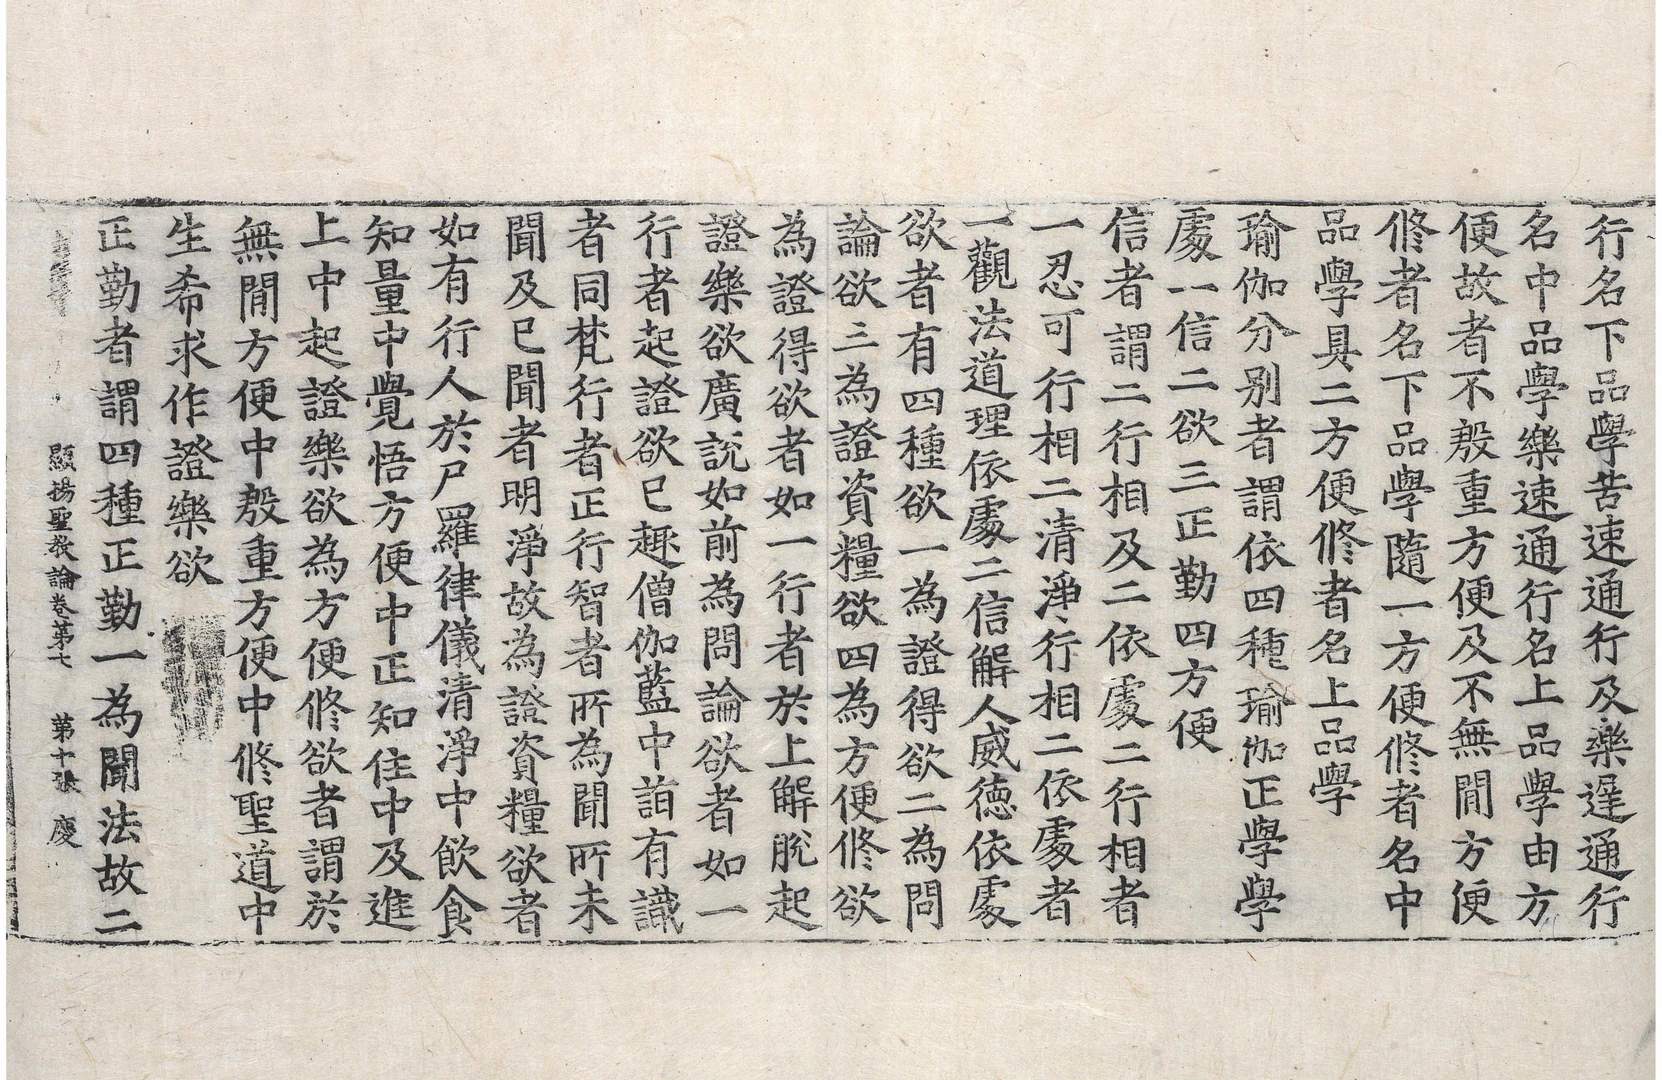 行名下品學苦速通行及樂遲通行
名中品學樂速通行名上品學由方
便故者不慇重方便及不無閒方便
修者名下品學隨一方便修者名中
品學具二方便修者名上品學
瑜伽分別者謂依四種瑜伽正學學
處一信二欲三正勤四方便
信者謂二行相及二依處二行相者
一忍可行相二清淨行相二依處者
一觀法道理依處二信解人威德依處
欲者有四種欲一為證得欲二為問
論欲三為證資糧欲四為方便修欲
為證得欲者如一行者於上解脫起
證樂欲廣說如前為問論欲者如一
行者起證欲已趣僧伽藍中詣有識
者同梵行者正行智者所為聞所未
聞及已聞者明淨故為證資糧欲者
如有行人於尸羅律儀清淨中飲食
知量中覺悟方便中正知住中及進
上中起證樂欲為方便修欲者謂於
無閒方便中慇重方便中修聖道中
生希求作證樂欲
正勤者謂四種正勤一為聞法故二
顯揚聖教論卷第七 第十張 慶